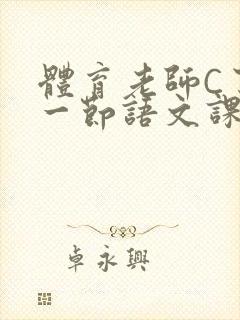 體育老師C
一節語文課
卓永興